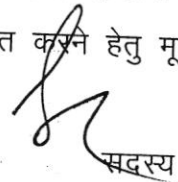 करने हेतु
सदस्य